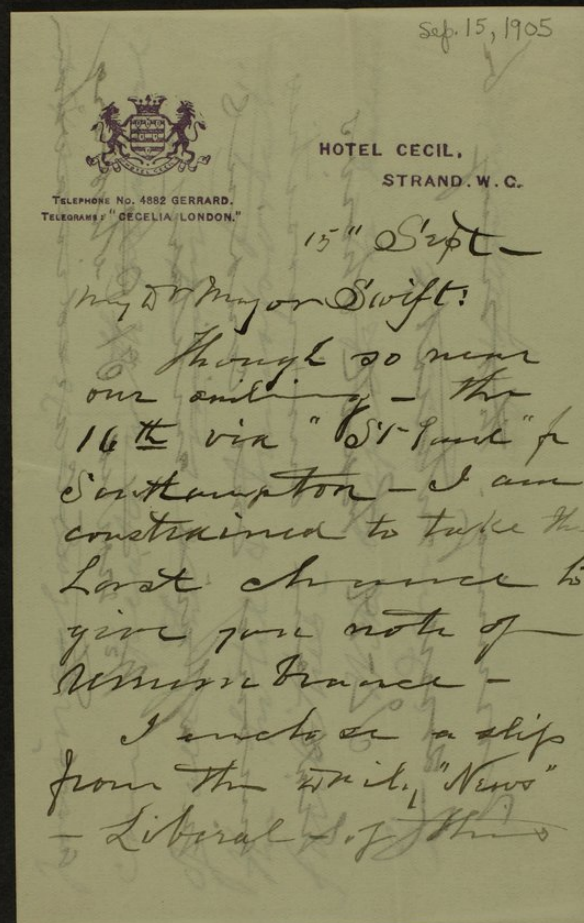 Sep. 15, 1905
HOTEL CECIL,
STRAND. W. C.
TELEPHONE NO. 4882 GERRARD.
TELEGRAMS: "CECELIA LONDON."
15" Sept -
My Dr Mayor Swift:
Though so near
our sailing - the
16th via "St Paul" fr
Southampton - I am
constrained to take the
last chance to
give you note of
remembrance -
I enclose a slip
from the Daily "News"
- Liberal